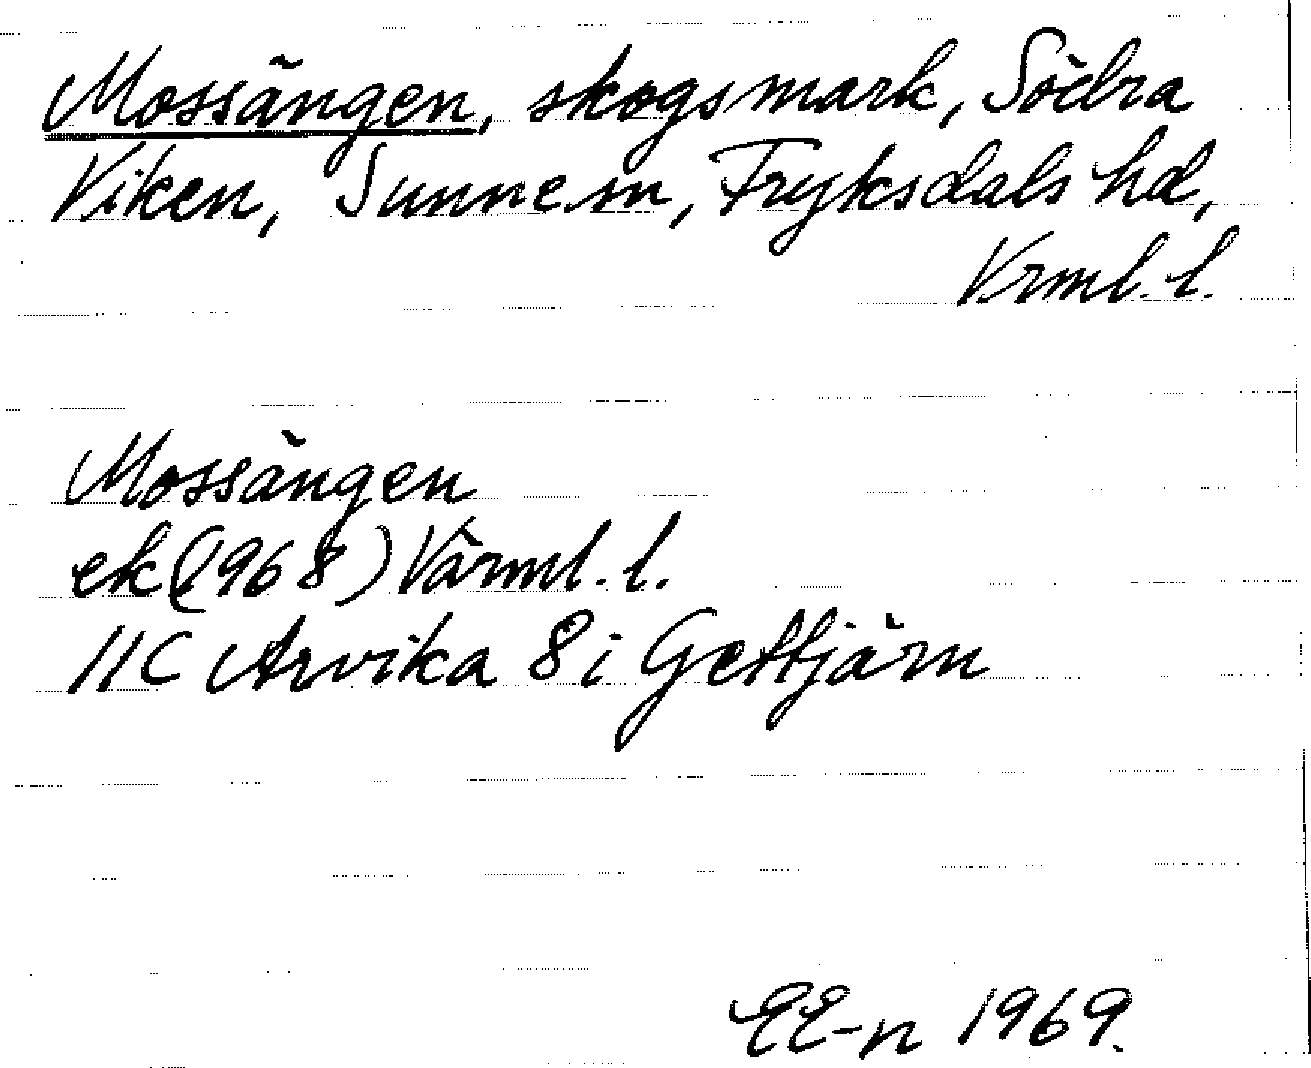 Mossängen, skogsmark, Södra
Viken, Sunne sn, Fryksdals hd,
Vrml. l.
Mossängen
ek (1968) Värml. l.
11C Arvika 8i Gettjärn
EE-n 1969.